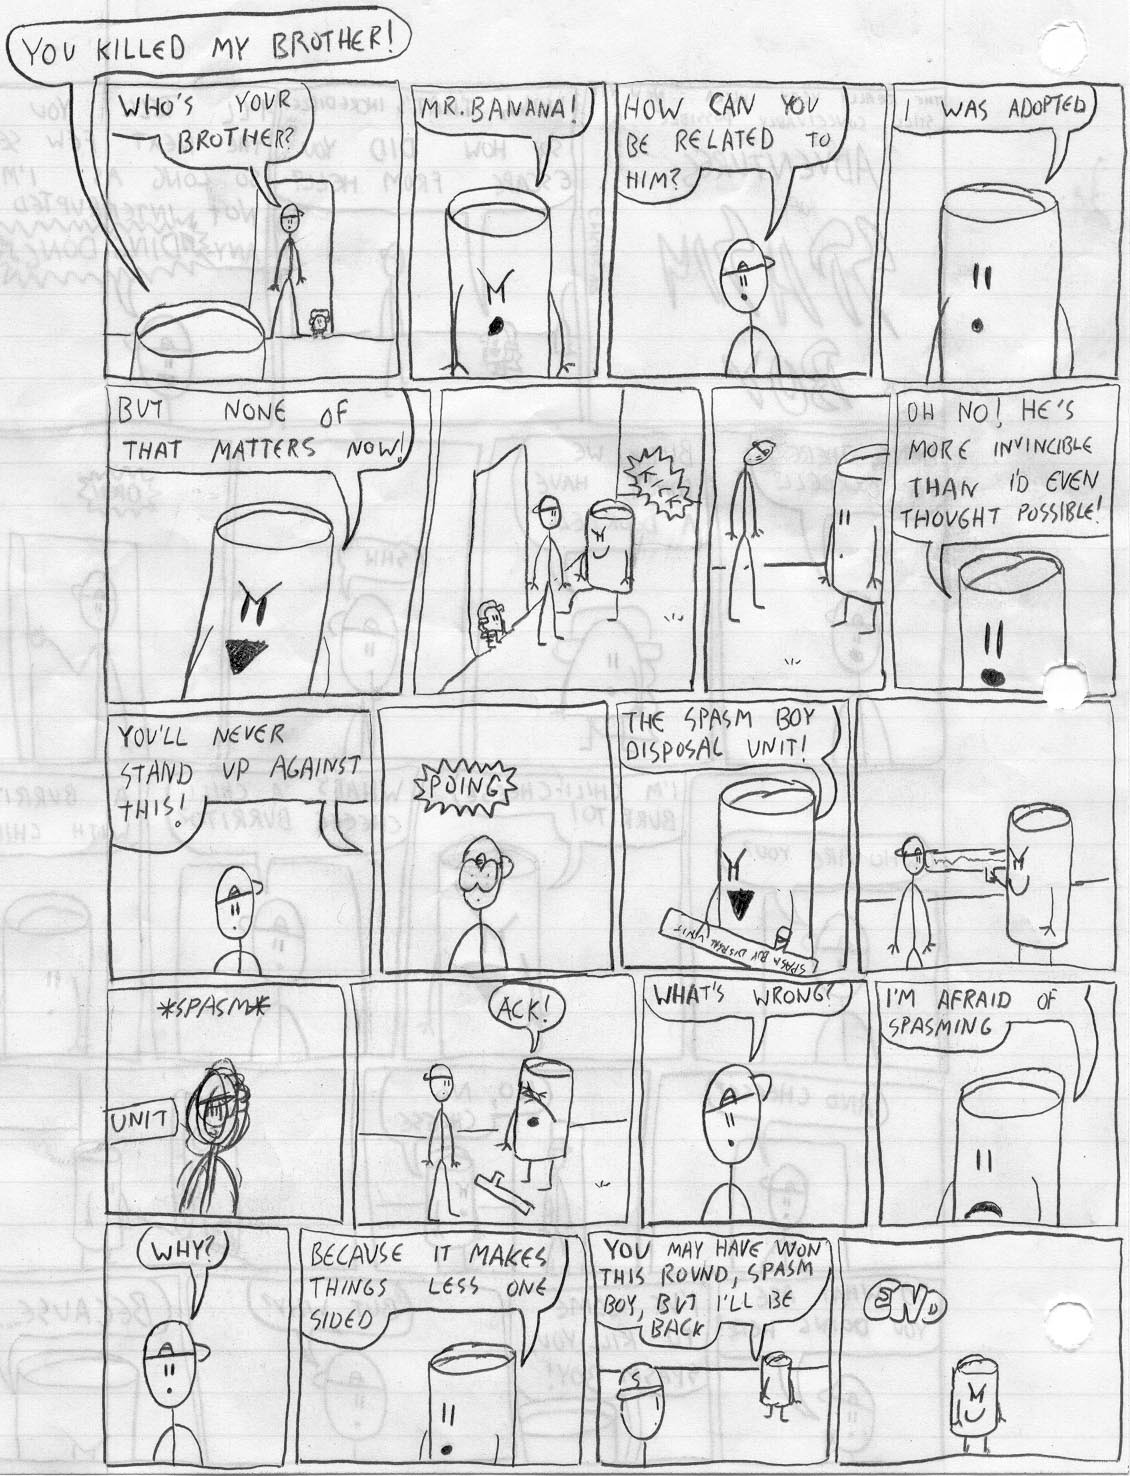 YOU KILLED MY BROTHER!
WHO'S YOUR
BROTHER?
MR. BANANA!
HOW CAN YOU
BE RELATED TO
HIM?
I WAS ADOPTED
BUT NONE OF
THAT MATTERS NOW!
OH NO! HE'S
MORE INVINCIBLE
THAN I'D EVEN
THOUGHT POSSIBLE!
YOU'LL NEVER
STAND UP AGAINST
THIS!
POING
THE SPASM BOY
DISPOSAL UNIT!
SPASM BOY DISPOSAL UNIT
*SPASM*
UNIT
ACK!
WHAT'S WRONG?
I'M AFRAID OF
SPASMING
WHY?
BECAUSE IT MAKES
THINGS LESS ONE
SIDED
YOU MAY HAVE WON
THIS ROUND, SPASM
BOY, BUT I'LL BE
BACK
S
END